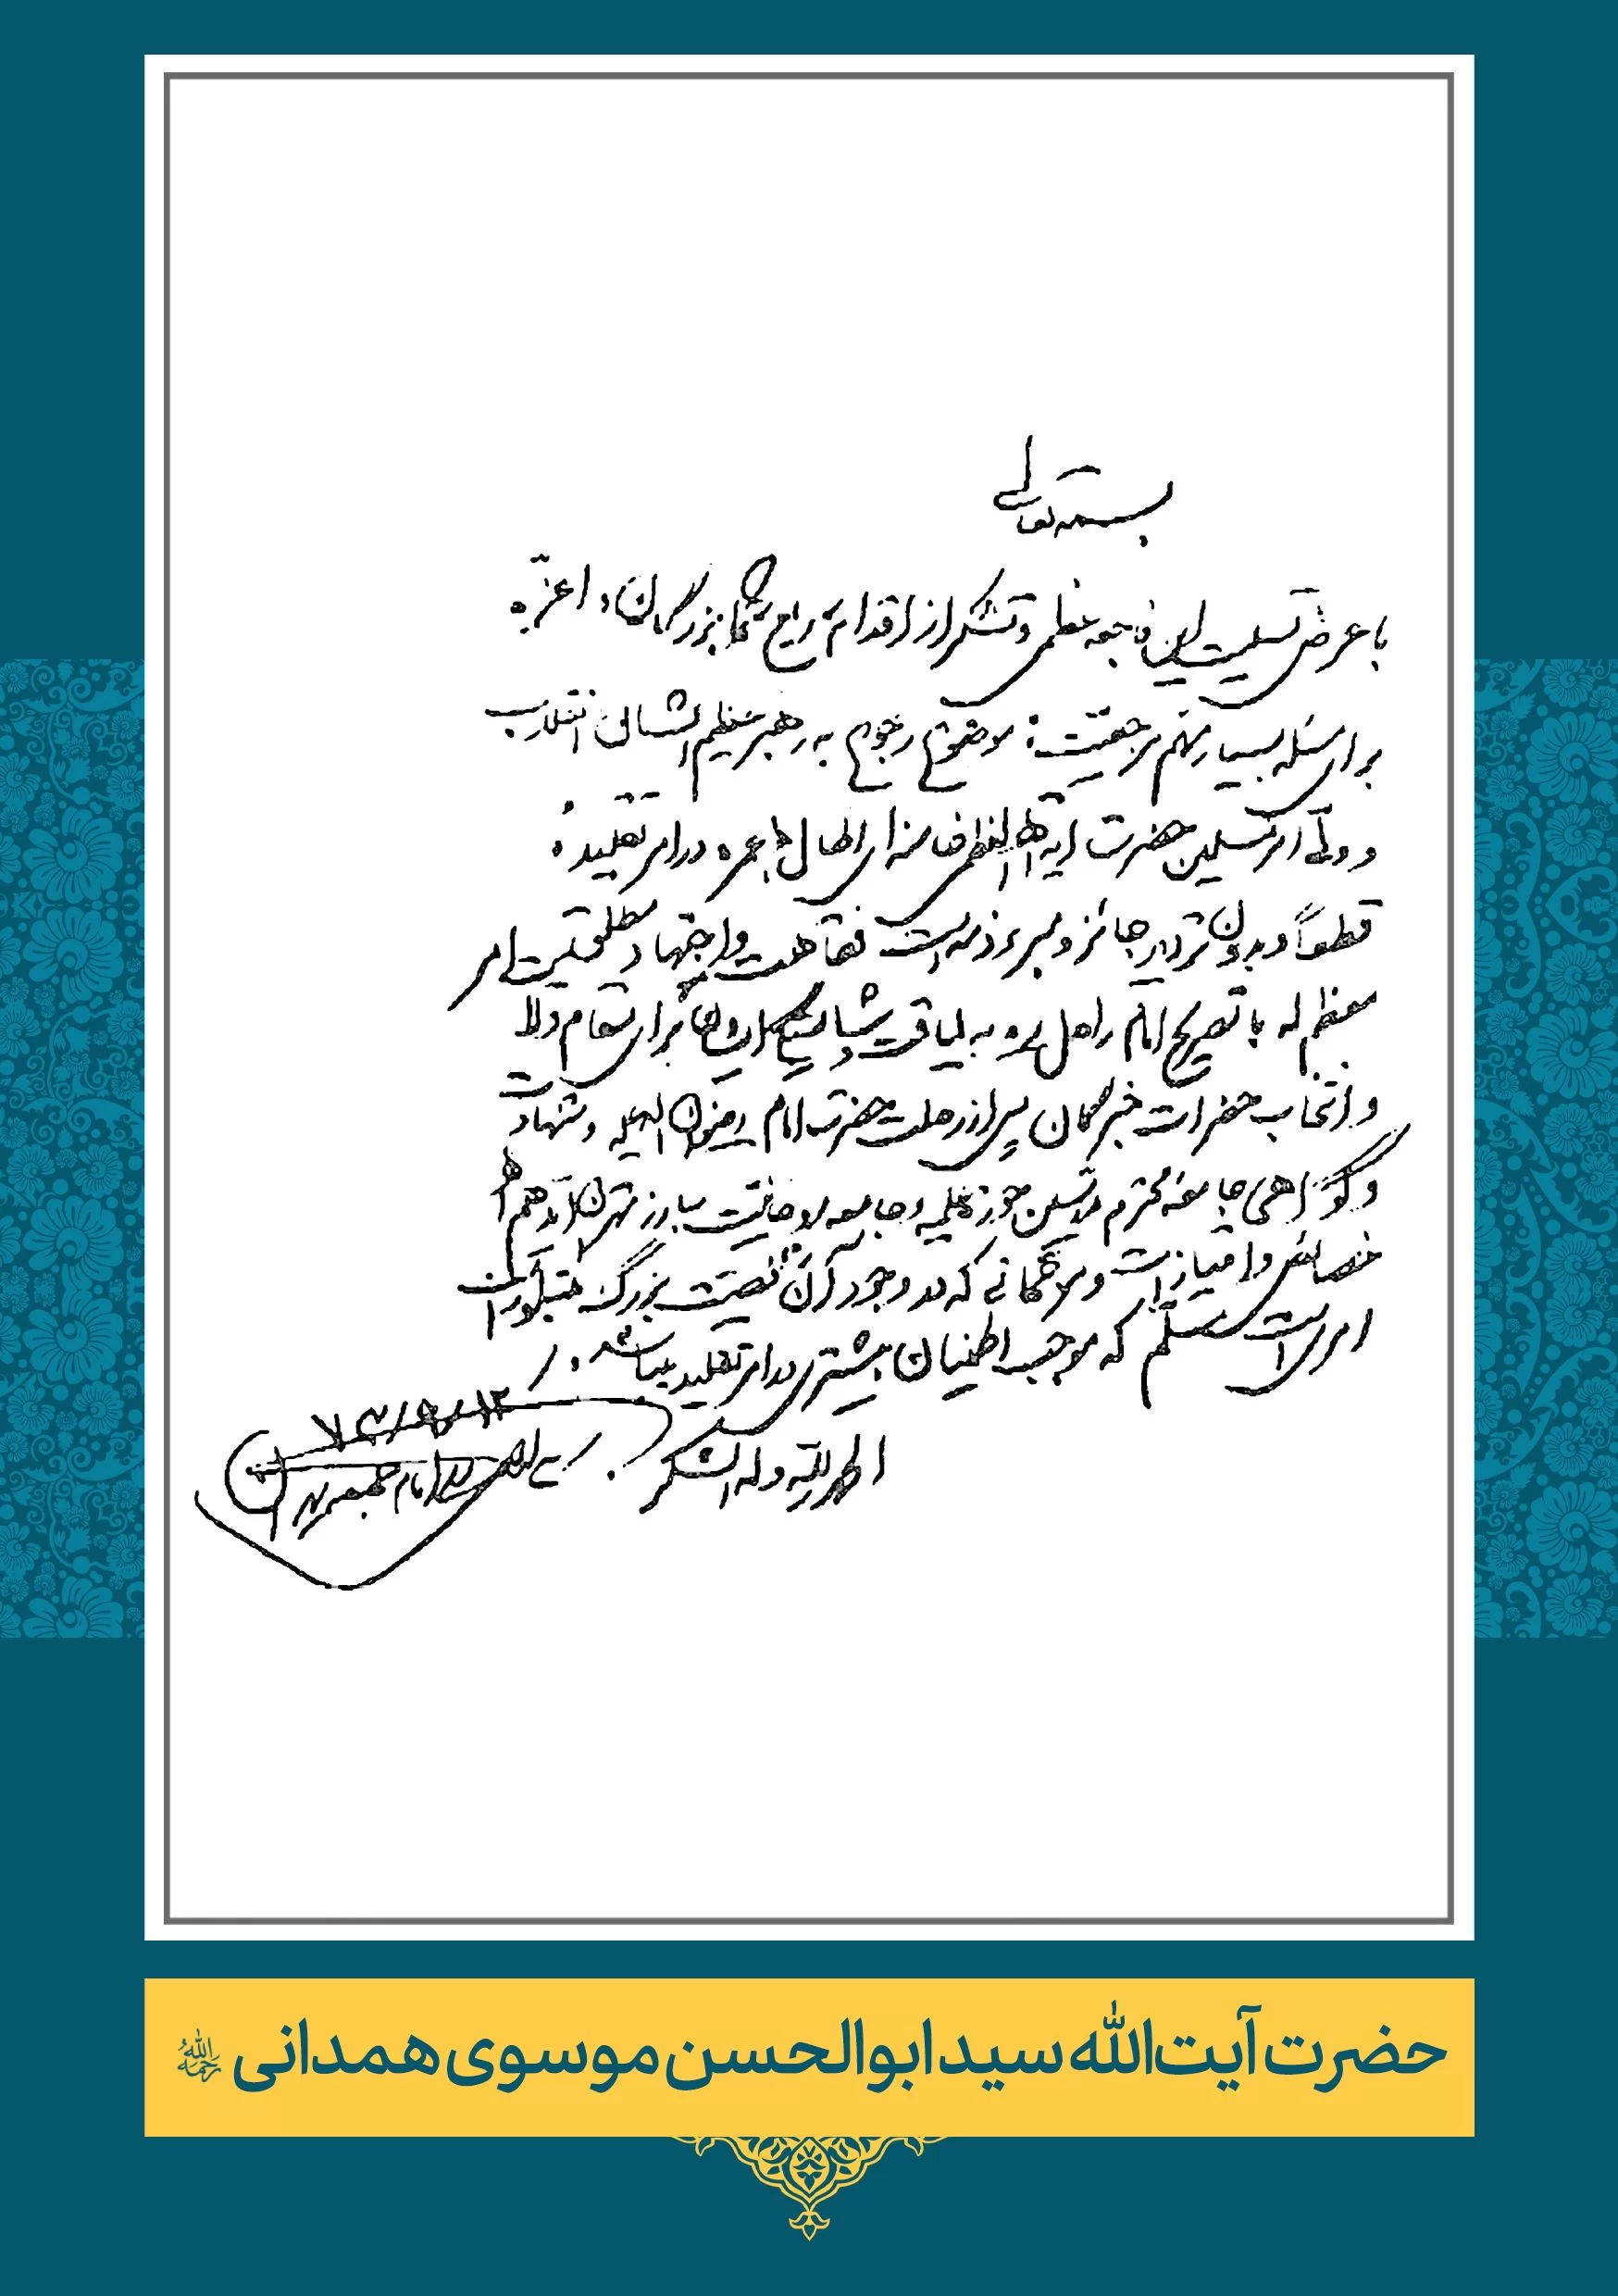 بسمه تعالی
با عرض تسلیت این فاجعه عظمی و تشکر از اقدام سریع شما بزرگان و اعزه
برای مسئله بسیار مهم مرجعیت: موضوع رجوع به رهبر عظیم الشأن انقلاب
و ولی امر مسلمین حضرت آیة الله العظمی خامنه‌ای اطال الله عمره در امر تقلید
قطعاً و بدون تردید جائز و مبرء ذمه است فقاهت و اجتهاد مطلق
معظم له با تصریح امام راحل به لیاقت و شایستگی ایشان برای مقام ولایت
و انتخاب حضرات خبرگان پس از رحلت حضرت امام رضوان الله علیه و شهادت
و گواهی جامعه محترم مدرسین حوزه علمیه و جامعه روحانیت مبارز تهران
خصائص و امتیازات که در وجود آن شخصیت بزرگ متبلور است
امری است مسلم که موجب اطمینان بیشتری در امر تقلید میباشد
۷۳/۹/۱۲
الحمد لله و له الشکر
امام جمعه
حضرت آیت‌الله سید ابوالحسن موسوی همدانی رحمه‌الله